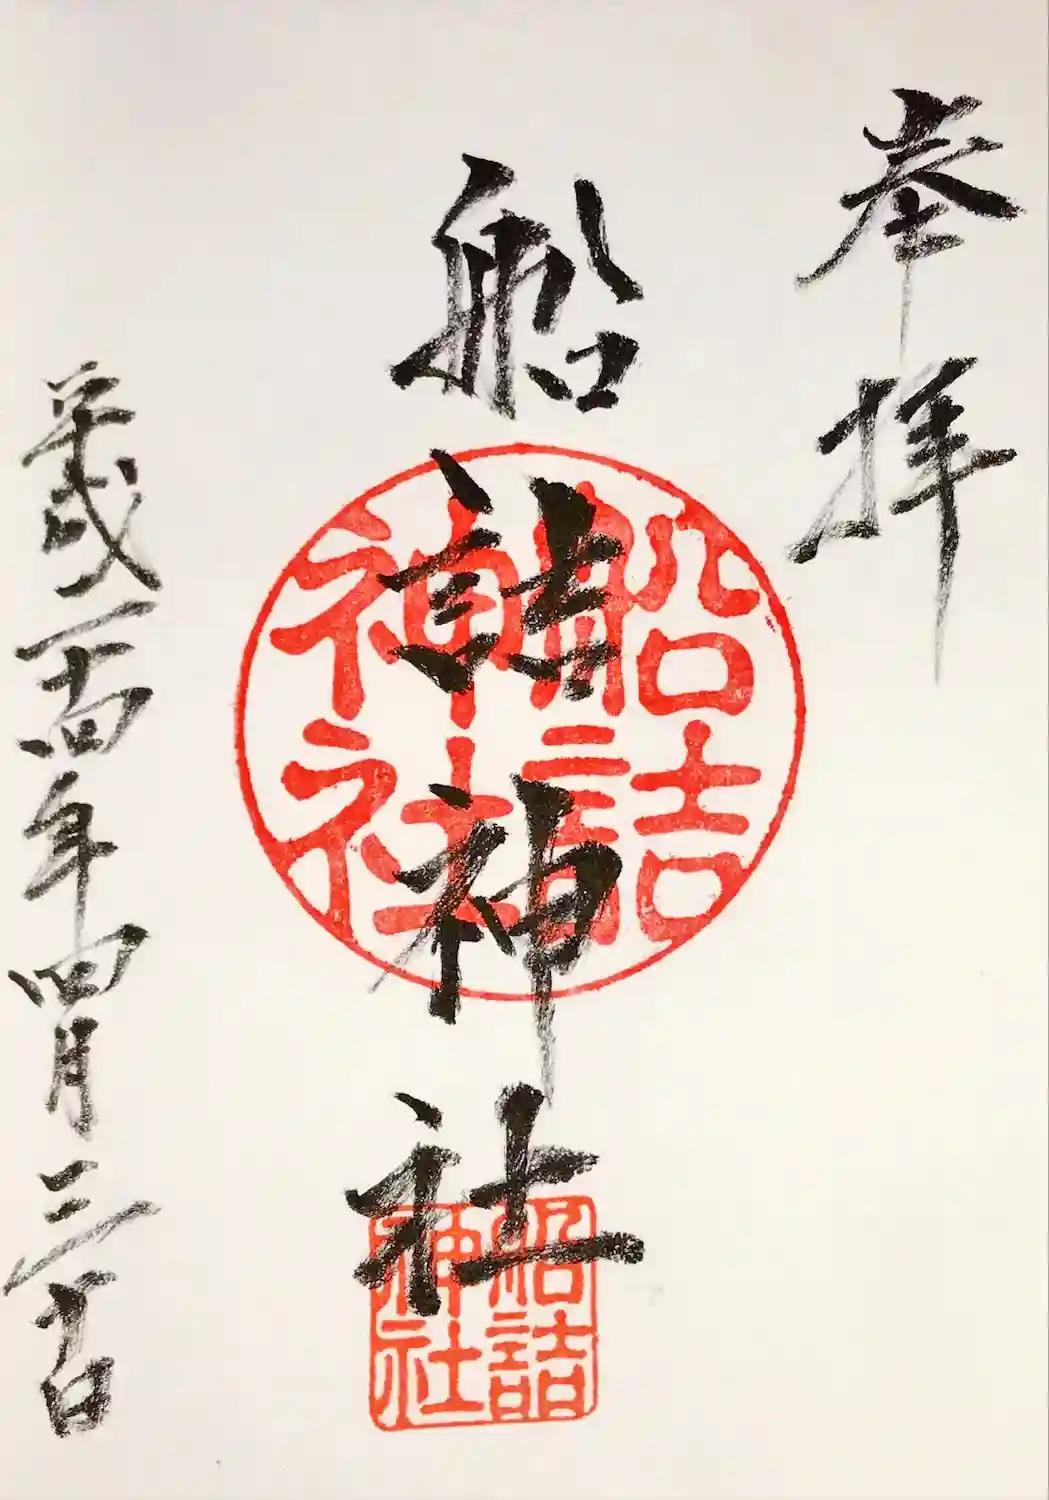 奉拝
船詰神社
平成二十四年四月三十日
船詰
神社
船詰
神社